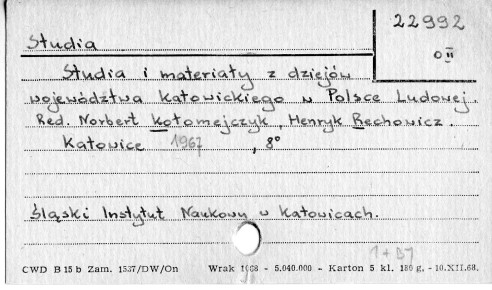 22992
Studia
O II
Studia i materiały z dziejów
województwa katowickiego w Polsce Ludowej.
Red. Norbert Kołomejczyk, Henryk Rechowicz.
Katowice 1967, 8°
Śląski Instytut Naukowy w Katowicach.
1 + B7
CWD B 15 b Zam. 1537/DW/On Wrak 1068 - 5.040.000 - Karton 5 kl. 180 g. - 10.XII.68.